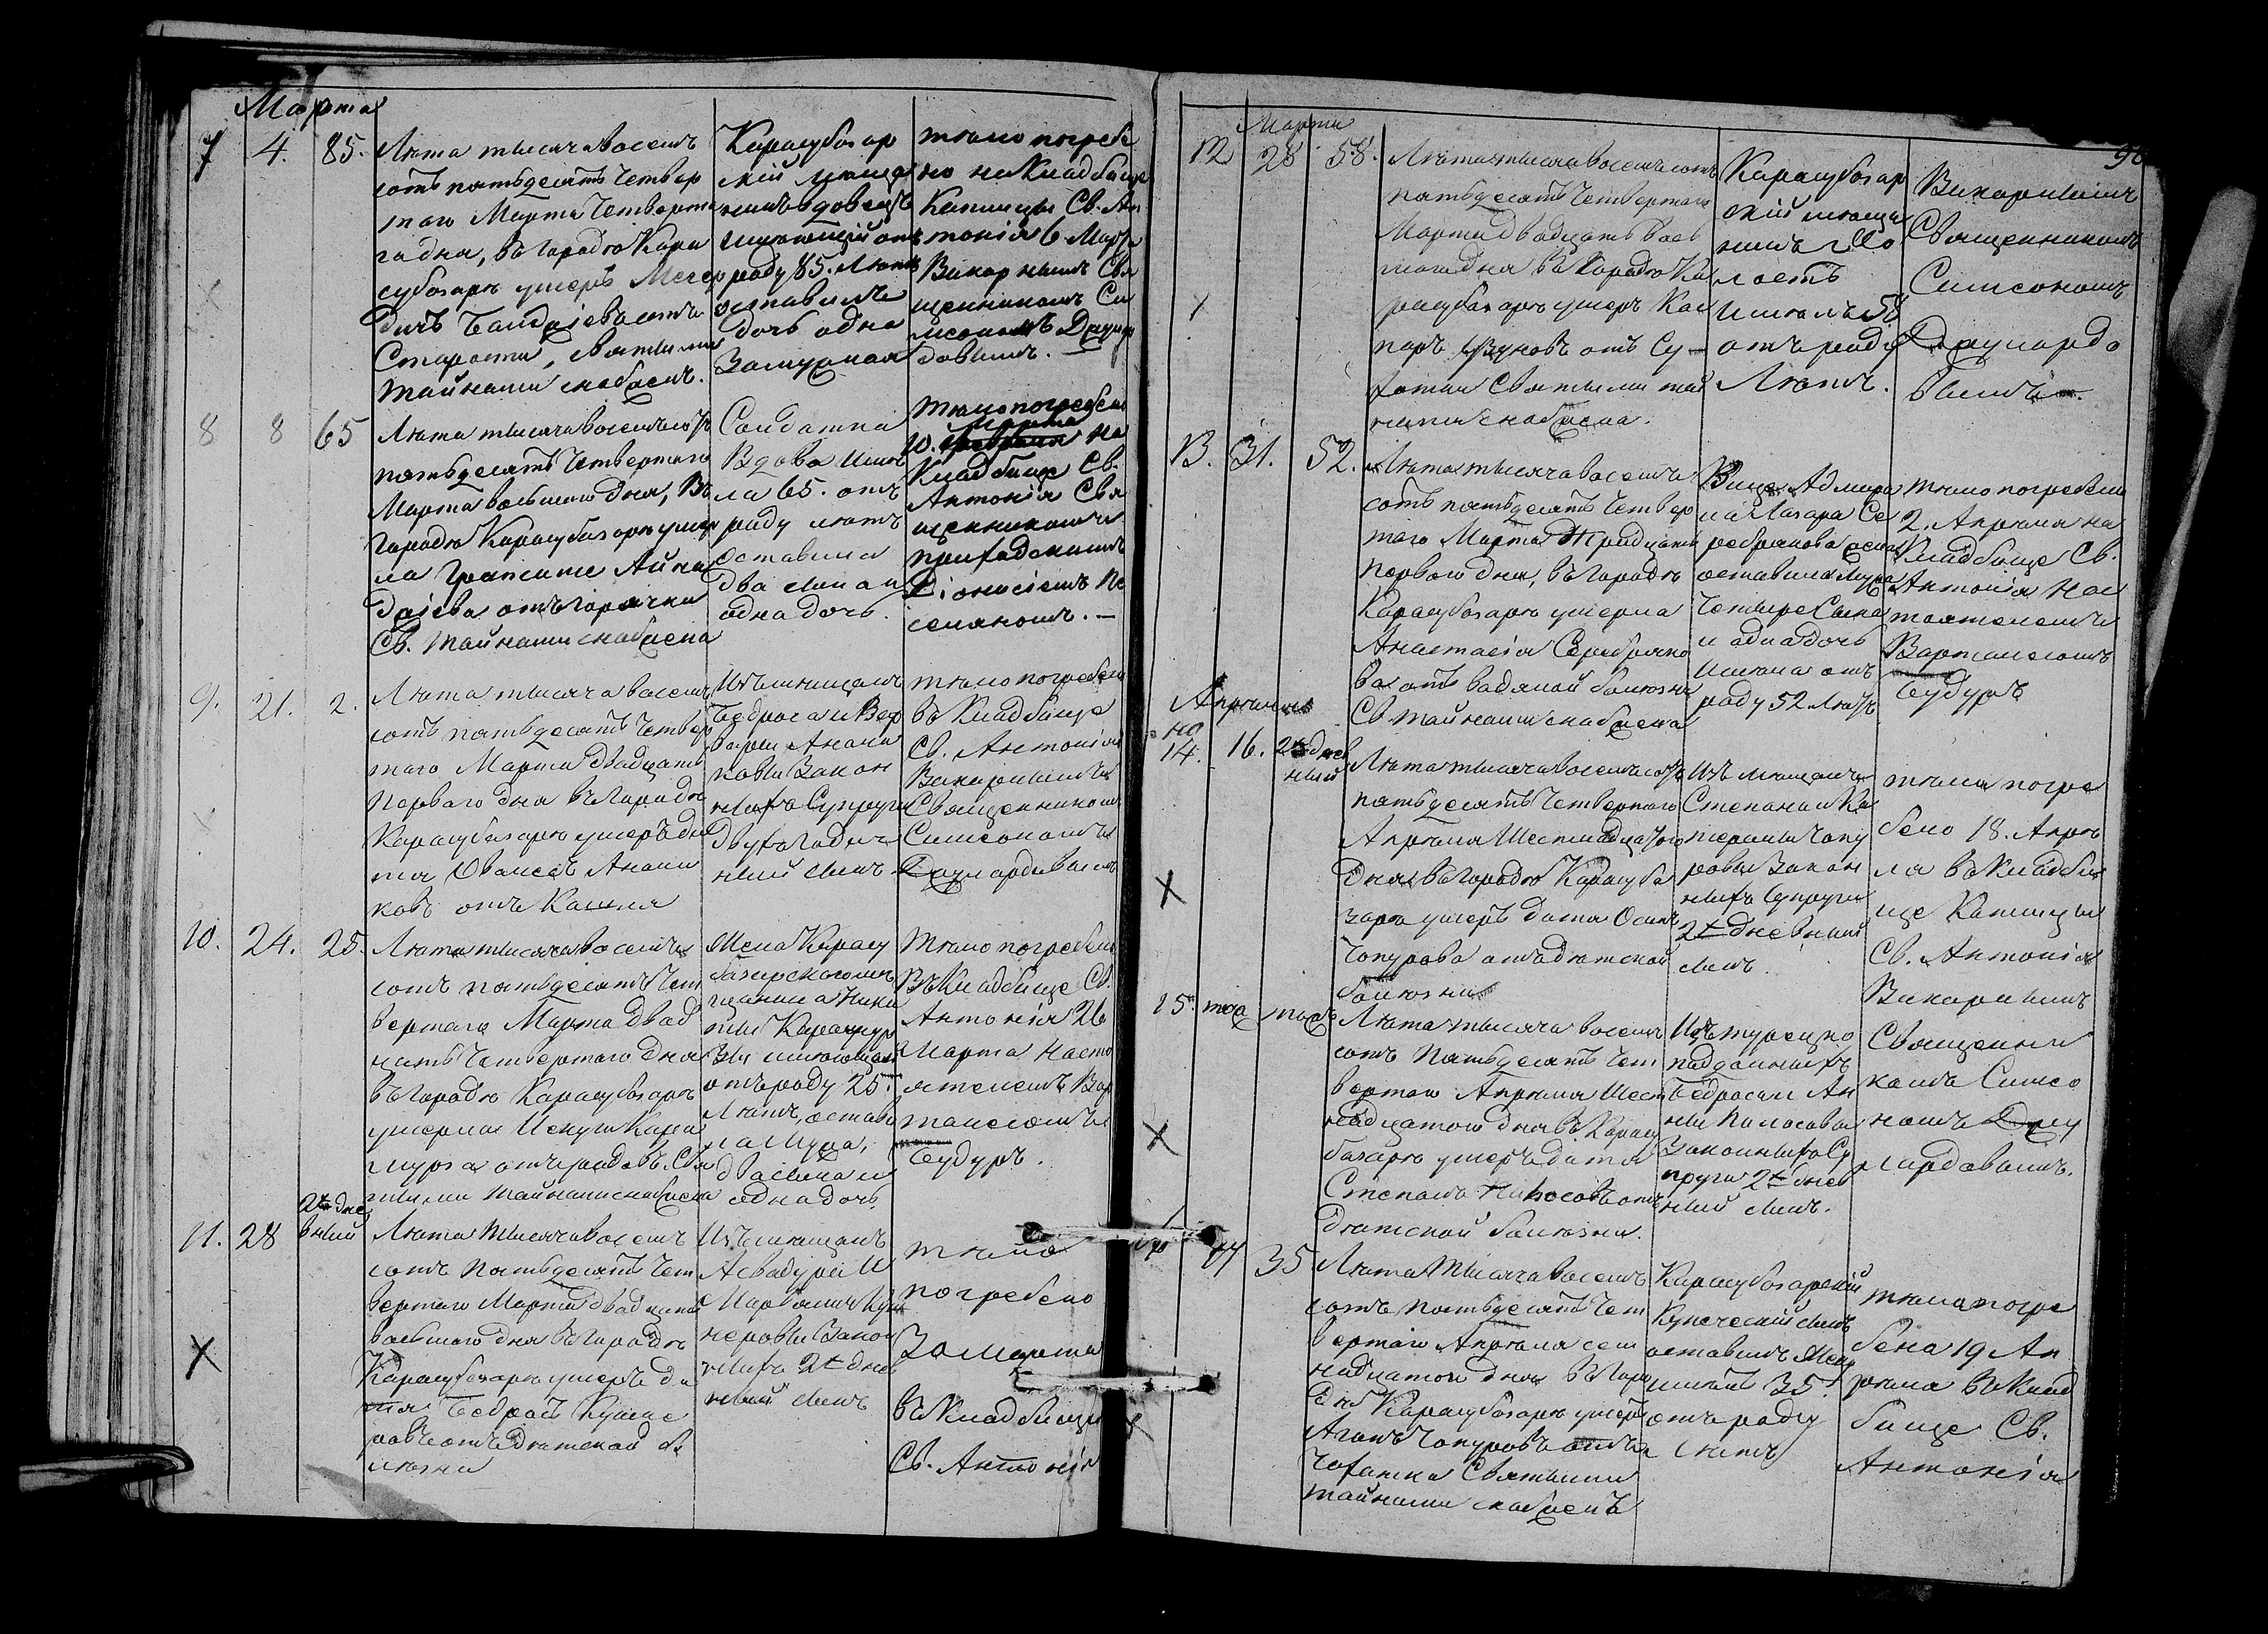 Марта
7 4. 85.
Лѣта тысяча восемь
сотъ пятьдесятъ четвер
таго Марта четверта
го дня, въ городѣ Кара
субазарѣ умеръ
отъ
Старости, Святыми
тайнами снабженъ.
Карасубазар
скій мѣща
нинъ вдовецъ
имѣющій отъ
роду 85. Лѣтъ
оставилъ
дочь одна
Замужная
тѣло погребе
но на Кладбище
Каплицы Св. Ан
тонія 6 Марта
Викарнымъ Свя
щенникомъ Си
мсономъ
довымъ.
8 8 65
Лѣта тысяча восемьсотъ
пятьдесятъ четвертаго
Марта восьмаго дня, Въ
городѣ Карасубазарѣ умер
ла
отъ горячки
Св. тайнами снабжена
Солдатка
Вдова имѣ
ла 65. отъ
роду лѣтъ
оставила
два сына и
одна дочь.
тѣло погребено
Марта
10. на
Кладбище Св.
Антонія Свя
щенникомъ
приходскимъ
Діонисіемъ
9. 21. 2.
Лѣта тысяча восемь
сотъ пятьдесятъ четвер
таго Марта двадцать
перваго дня въ городѣ
Карасубазарѣ умеръ ди
тя Ованесъ Анани
ковъ отъ Кашля
Изъ мѣщанъ
Бедроса и Вар
вары Анани
ковы Закон
ныхъ Супруги
Двухгодич
ный сынъ
тѣло погребено
въ Кладбище
Св. Антонія
Викарнымъ
Священникомъ
Симсономъ
10. 24. 25.
Лѣта тысяча восемь
сотъ пятьдесятъ чет
вертаго Марта двад
цать четвертаго дня
въ городѣ Карасубазарѣ
умерла
отъ родовъ. Свя
тыми тайнами снабжена
Жена Карасу
базарскаго мѣ
щанина Ники
ты
имѣющая
отъ роду 25.
Лѣтъ, остави
ла мужа,
два сына и
одна дочь.
Тѣло погребено
Въ Кладбище Св.
Антонія 26
Марта Насто
ятелемъ Вар
танесомъ
Будуръ.
2х дне
вный
11. 28
Лѣта тысяча восемь
сотъ пятьдесятъ чет
вертаго Марта двадцать
восьмаго дня въ городѣ
Карасубазарѣ умеръ ди
тя Бедросъ
отъ дѣтской бо
лѣзни
Изъ мѣщанъ
Асвадура И
неровы Закон
ныхъ 2х днев
ный сынъ
тѣло
погребено
30 Марта
въ Кладбище
Св. Антонія
Марта
98
12 28 58.
Лѣта тысяча восемьсотъ
пятьдесятъ четвертаго
Марта двадцать вось
маго дня въ городѣ Ка
расубазарѣ умеръ Кас
паръ отъ Су-
хотки Святыми тай
нами снабжена.
Карасубазар
скій мѣща
нинъ Хо
лостъ
имѣлъ 58
отъ роду
Лѣтъ.
Викарнымъ
Священникомъ
Симсономъ
вымъ.
13. 31. 52.
Лѣта тысяча восемь
сотъ пятьдесятъ четвер
таго Марта Тридцать
перваго дня, въ городѣ
Карасубазарѣ умерла
Анастасія Серебряко
ва отъ водяной болѣзни
Св тайнами снабжена
Вице Адмира
ла Лазара Се
ребрякова жена
оставила мужа
четыре сына
и одна дочь
имѣла отъ
роду 52. лѣтъ
тѣло погребено
2. Апрѣля на
Кладбище Св.
Антонія Нас
тоятелемъ
Вартанесомъ
Будуръ
Апрѣль
14. 16. 2х днев
ный
Лѣта тысяча восемьсотъ
пятьдесятъ четвертаго
Апрѣля Шестнадцатого
дня въ городѣ Карасуба
зарѣ умеръ дитя Осипъ
Чопурова отъ дѣтской
болѣзни
Изъ мѣщанъ
Степана и Ка
терины Чопу
ровы Закон
ныхъ супруги
2х дневный
сынъ.
тѣло погре
бено 18. Апрѣ
ля въ Кладби
ще Каплицы
Св. Антонія
Викарнымъ
Священни
комъ Симсо
номъ
15. тоже тоже
Лѣта тысяча восемь
сотъ пятьдесятъ чет
вертаго Апрѣля Шест
надцатого дня въ Карасу
базарѣ умеръ дитя
Степанъ отъ
дѣтской болѣзни.
Изъ турецко
подданныхъ
Бедроса и Ан
ны
Законныхъ Су
пруги 2х днев
ный сынъ.
17 35
Лѣта тысяча восемь
сотъ пятьдесятъ чет
вертаго Апрѣля сем
надцатого дня въ горо
дѣ Карасубазарѣ умеръ
Агопъ Чопуровъ отъ
чахотки Святыми
тайнами снабженъ
Карасубазарскій
Купеческій сынъ
оставилъ Жену
имѣлъ 35.
отъ роду
лѣтъ
тѣло погре
бено 19 Ап
рѣля въ Клад
бище Св.
Антонія